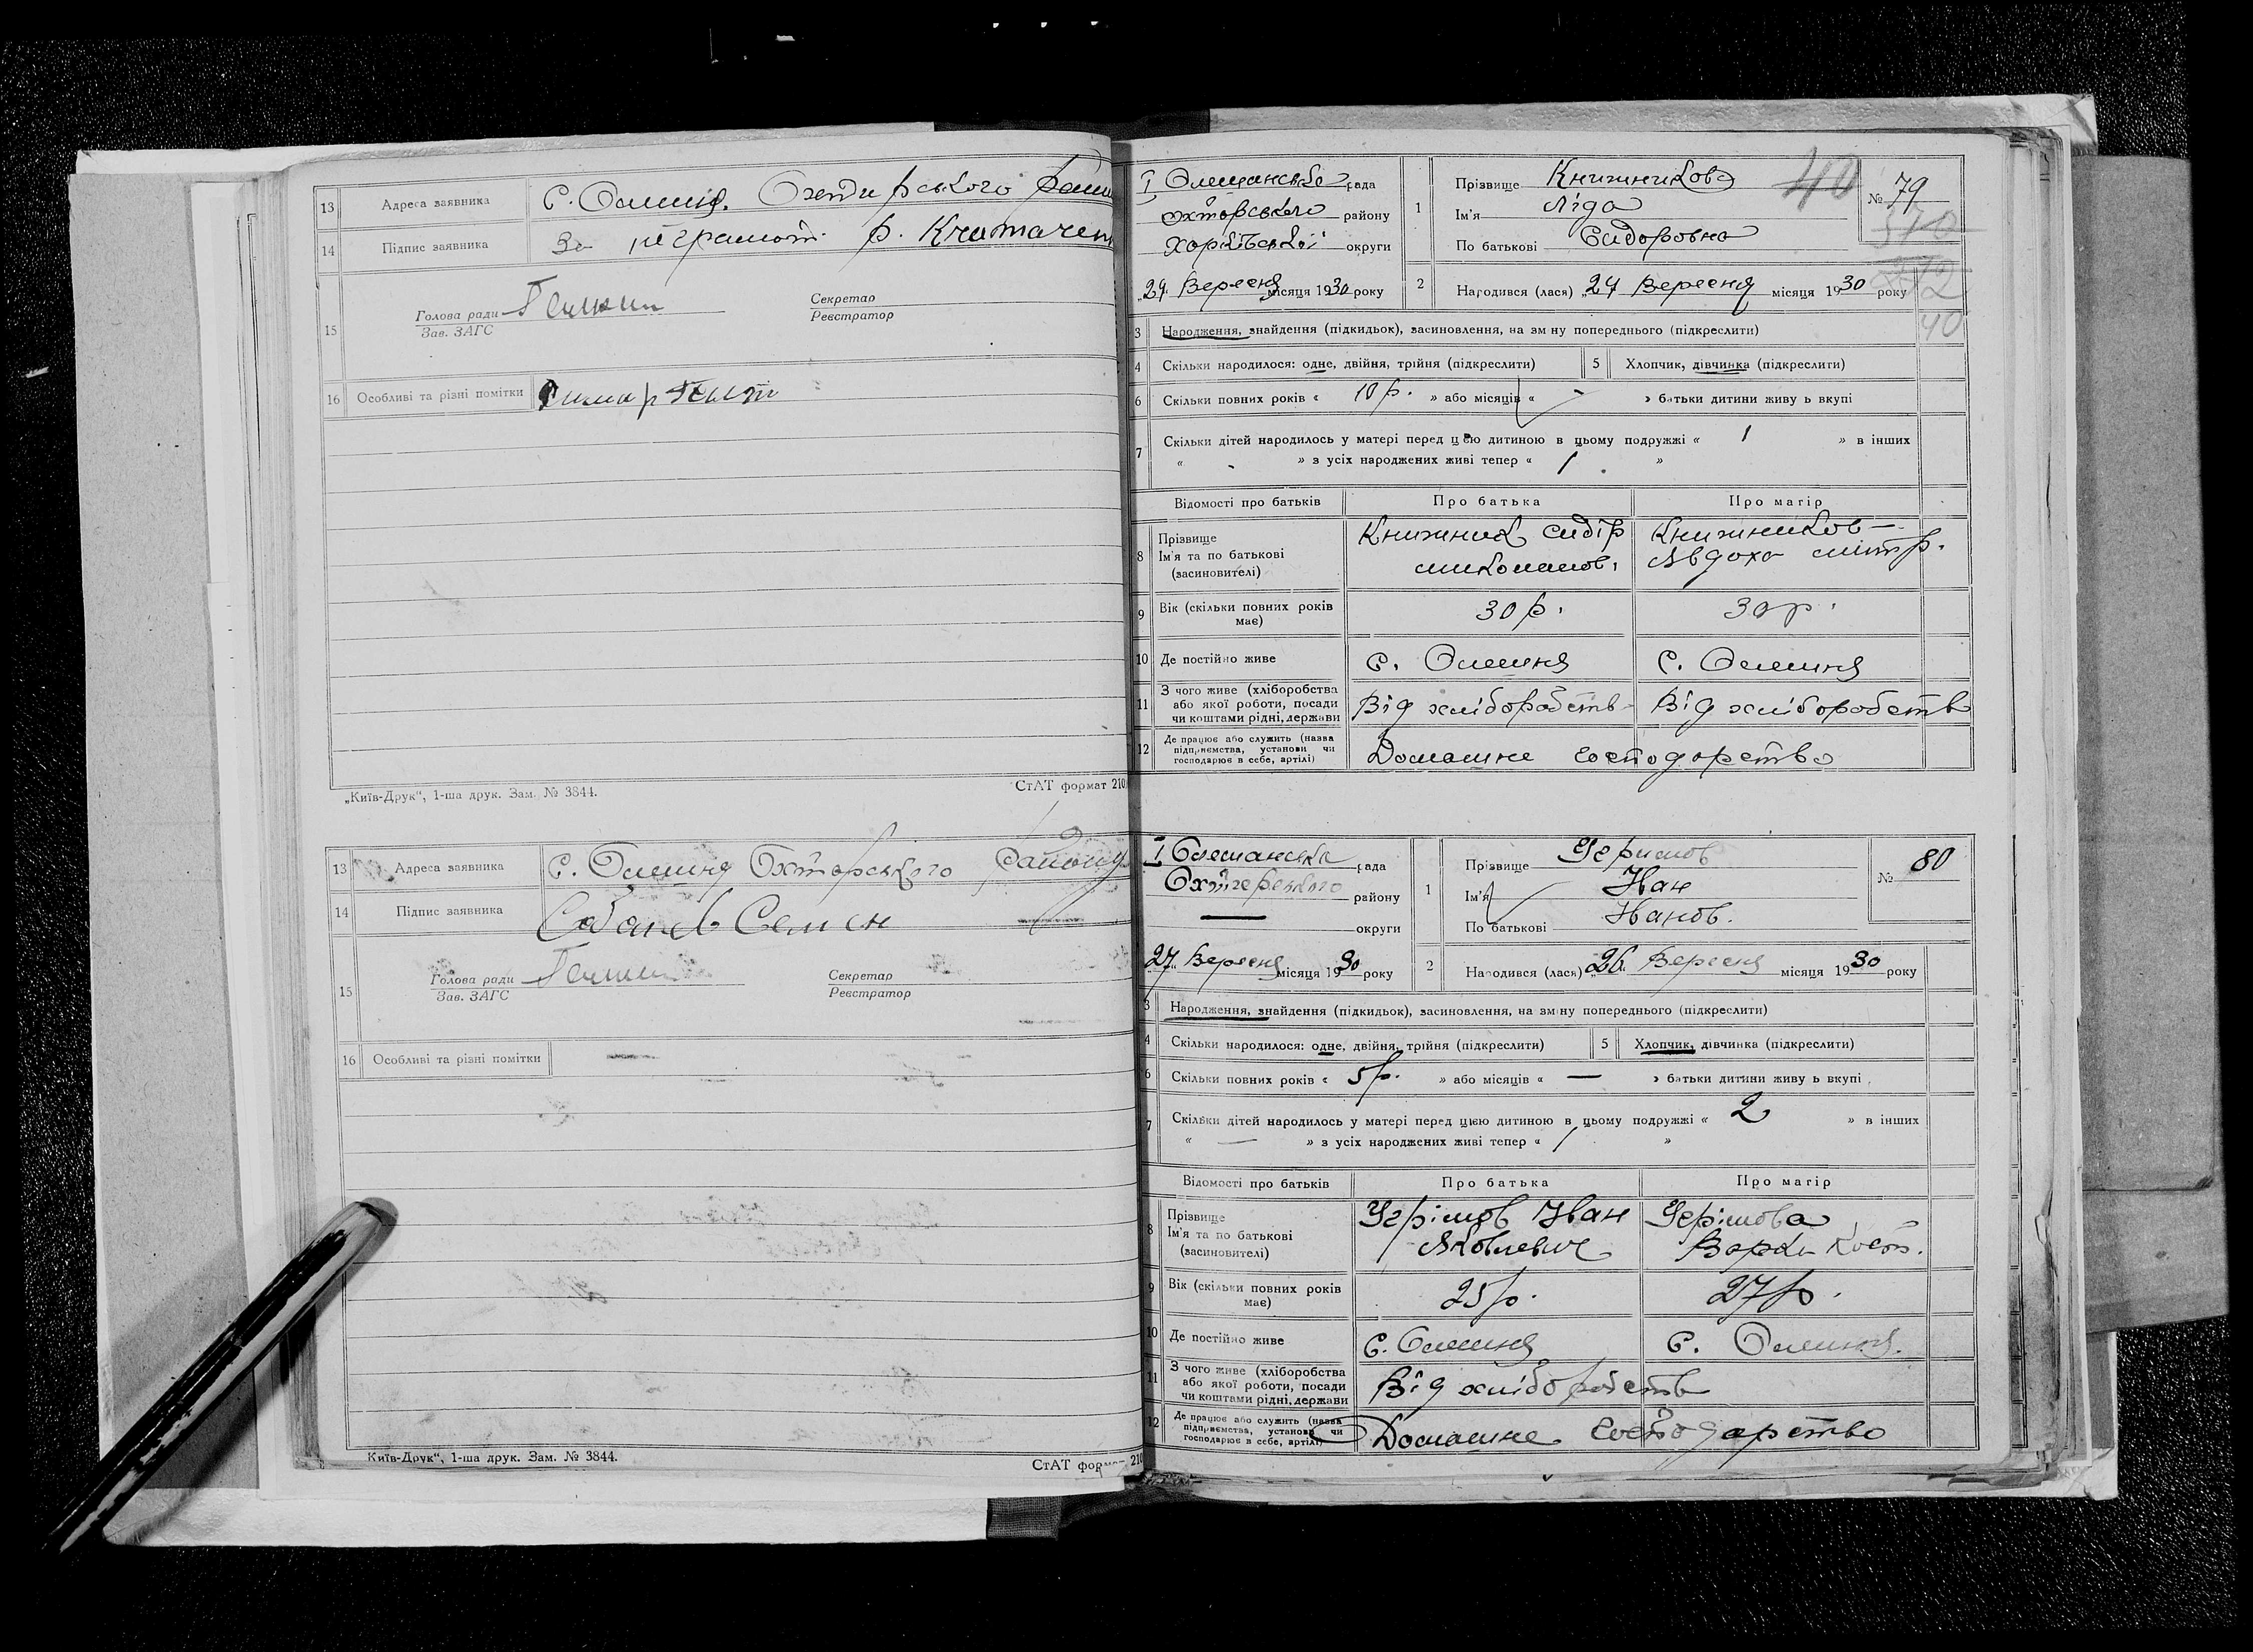 13 Адреса заявника С. Олешня Охтирського
14 Підпис заявника За неграмотн. р.
15 Голова ради Секретар
Зав. ЗАГС Реєстратор
16 Особливі та різні помітки
„Київ-Друк“, 1-ша друк. Зам. № 3844. СтАТ формат 210
13 Адреса заявника С. Олешня Охторського району
14 Підпис заявника Семен
15 Голова ради Секретар
Зав. ЗАГС Реєстратор
16 Особливі та різні помітки —
Київ-Друк“, 1-ша друк. Зам. № 3844. СтАТ формат 210
I Олешанська рада
Охторського району
Харківської округи
„29“ Вересня місяця 1930 року
1 Прізвище Книжникова
Ім'я Ліда
По батькові Сидоровна
40
№ 79
370
40
2 Народився (лася) „24 Вересня місяця 1930 року
3 Народження, знайдення (підкидьок), засиновлення, на зміну попереднього (підкреслити)
4 Скільки народилося: одне, двійня, трійня (підкреслити) 5 Хлопчик, дівчинка (підкреслити)
6 Скільки повних років « 10 р. » або місяців « — » батьки дитини живуть вкупі
7 Скільки дітей народилось у матері перед цією дитиною в цьому подружжі « 1 » в інших
« - » з усіх народжених живі тепер « 1 »
Відомості про батьків Про батька Про матір
8 Прізвище Ім'я та по батькові (засновителі) Книжник Сидір Книжников —
Миколаєв. Авдоха Митр.
9 Вік (скільки повних років має) 30 р. 30 р.
10 Де постійно живе С. Олешня С. Олешня
11 З чого живе (хліборобства або якої роботи, посади чи коштами рідні, держави Від хліборобств Від хліборобств
12 Де працює або служить (назва підприємства, установи чи господарює в себе, артілі) Домашнє господарство
I Олешанська рада
Охтирського району
— округи
27 Вересня місяця 1930 року
1 Прізвище
Ім'я Иван
По батькові Иванов.
№ 80
2 Народився (лася) „26“ Вересня місяця 1930 року
3 Народження, знайдення (підкидьок), засиновлення, на зміну попереднього (підкреслити)
4 Скільки народилося: одне, двійня, трійня (підкреслити) 5 Хлопчик, дівчинка (підкреслити)
6 Скільки повних років « 5 р. » або місяців « — » батьки дитини живуть вкупі
7 Скільки дітей народилось у матері перед цією дитиною в цьому подружжі « 2 » в інших
« — » з усіх народжених живі тепер « 1 »
Відомості про батьків Про батька Про матір
8 Прізвище Ім'я та по батькові (засновителі) Иван
Яковлевич Варка Кост.
9 Вік (скільки повних років має) 25 р. 27 р.
10 Де постійно живе С. Олешня С. Олешня.
11 З чого живе (хліборобства або якої роботи, посади чи коштами рідні, держави Від хліборобств
12 Де працює або служить (назва підприємства, установи чи господарює в себе, артілі) Домашнє господарство